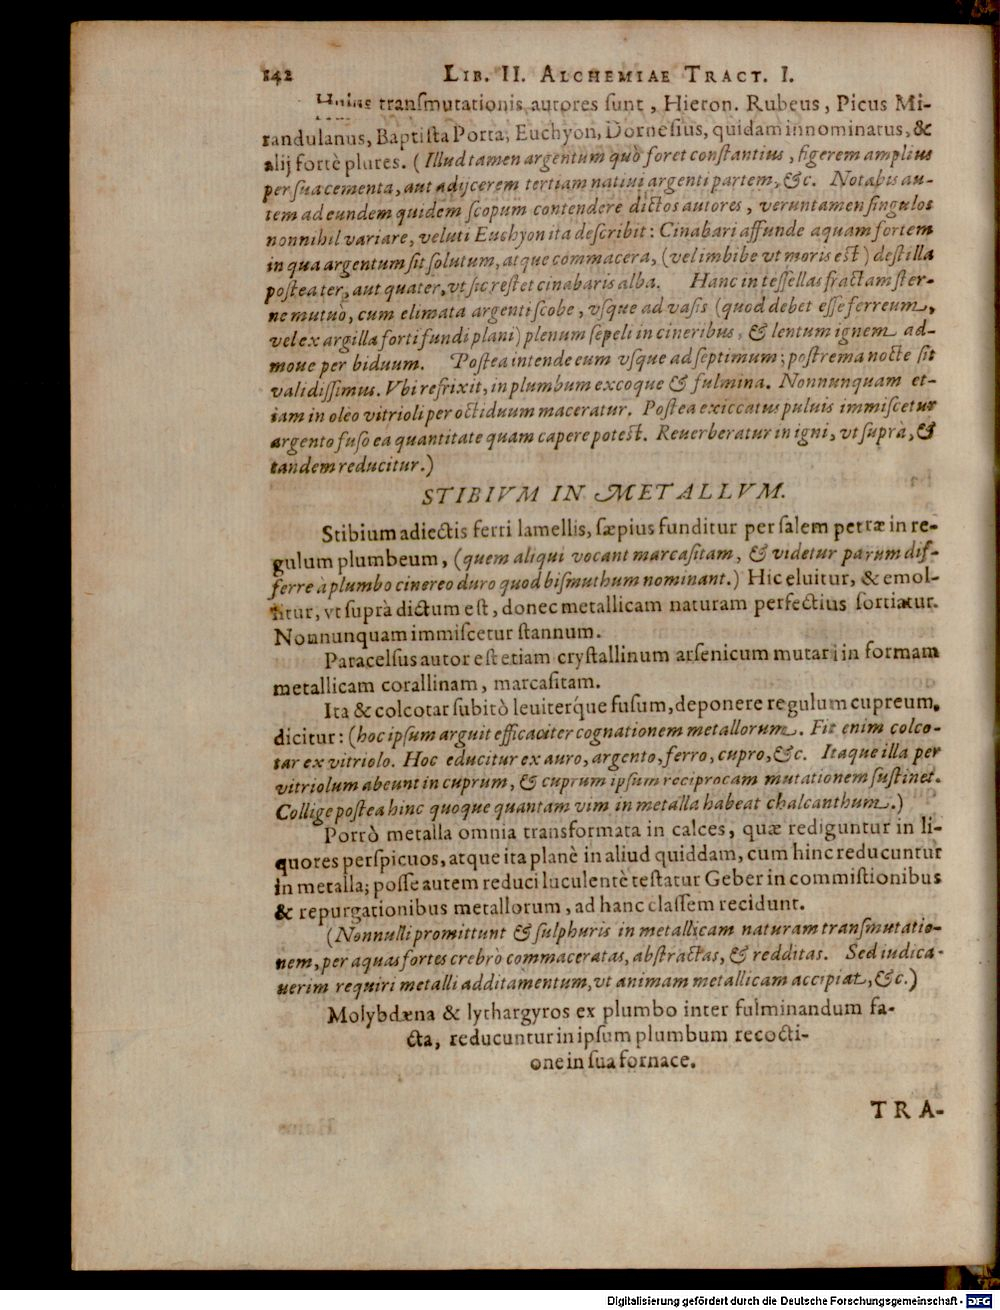 142 LIB. II. ALCHEMIAE TRACT. I.
Huius transmutationis autores sunt, Hieron. Rubeus, Picus Mi-
randulanus, Baptista Porta, Euchyon, Dornesius, quidam innominatus, &
alij fortè plures. (Illud tamen argentum quò foret constantius, figerem amplius
per sua cementa, aut adijcerem tertiam natiui argenti partem, &c. Notabis au-
tem ad eundem quidem scopum contendere dictos autores, veruntamen singulos
nonnihil variare, veluti Euchyon ita describit: Cinabari affunde aquam fortem
in qua argentum sit solutum, atque commacera, (vel imbibe vt moris est) destilla
postea ter, aut quater, vt sic restet cinabaris alba. Hanc in tessellas fractam ster-
ne mutuò, cum elimata argenti scobe, vsque ad vasis (quod debet esse ferreum,
vel ex argilla forti fundi plani) plenum sepeli in cineribus, & lentum ignem ad-
moue per biduum. Postea intende eum vsque ad septimum; postrema nocte sit
validissimus. Vbi refrixit, in plumbum excoque & fulmina. Nonnunquam et-
iam in oleo vitrioli per octiduum maceratur. Postea exiccatus puluis immiscetur
argento fuso ea quantitate quam capere potest. Reuerberatur in igni, vt suprà, &
tandem reducitur.)
STIBIVM IN METALLVM.
Stibium adiectis ferri lamellis, sæpius funditur per salem petræ in re-
gulum plumbeum, (quem aliqui vocant marcasitam, & videtur parum dif-
ferre à plumbo cinereo duro quod bismuthum nominant.) Hic eluitur, & emol-
litur, vt suprà dictum est, donec metallicam naturam perfectius sortiatur.
Nonnunquam immiscetur stannum.
Paracelsus autor est etiam crystallinum arsenicum mutari in formam
metallicam corallinam, marcasitam.
Ita & colcotar subitò leuiterq́ue fusum, deponere regulum cupreum,
dicitur: (hoc ipsum arguit efficaciter cognationem metallorum. Fit enim colco-
tar ex vitriolo. Hoc educitur ex auro, argento, ferro, cupro, &c. Itaque illa per
vitriolum abeunt in cuprum, & cuprum ipsum reciprocam mutationem sustinet.
Collige postea hinc quoque quantam vim in metalla habeat chalcanthum.)
Porrò metalla omnia transformata in calces, quæ rediguntur in li-
quores perspicuos, atque ita planè in aliud quiddam, cum hinc reducuntur
in metalla; posse autem reduci luculentè testatur Geber in commistionibus
& repurgationibus metallorum, ad hanc classem recidunt.
(Nonnulli promittunt & sulphuris in metallicam naturam transmutatio-
nem, per aquas fortes crebrò commaceratas, abstractas, & redditas. Sed iudica-
uerim requiri metalli additamentum, vt animam metallicam accipiat, &c.)
Molybdæna & lythargyros ex plumbo inter fulminandum fa-
cta, reducuntur in ipsum plumbum recocti-
one in sua fornace.
TRA-
Digitalisierung gefördert durch die Deutsche Forschungsgemeinschaft - DFG